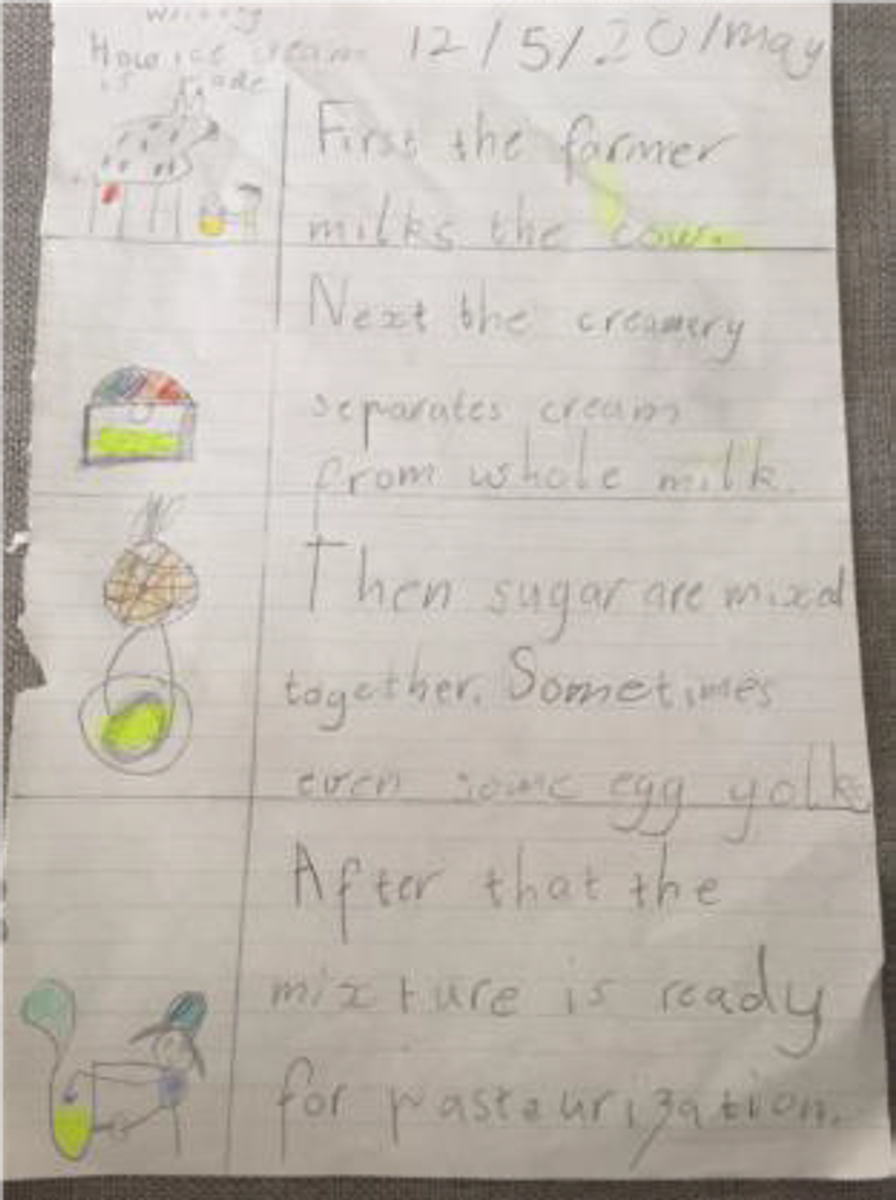 writing
How ice cream
is made
12/5/20/may
First the farmer
milks the cow.
Next the creamery
separates cream
from whole milk.
Then sugar are mixed
together. Sometimes
even some egg yolks
After that the
mixture is ready
for pasteurization.